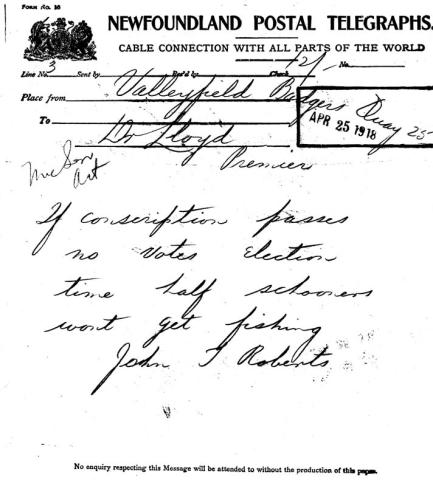 FORM No. 16
NEWFOUNDLAND POSTAL TELEGRAPHS.
CABLE CONNECTION WITH ALL PARTS OF THE WORLD
Line No. 3 Sent by Rec'd by Check No.
Place from Valleyfield Badgers Quay 25
APR 25 1918
To Dr Lloyd
Premier
If conscription passes
no votes Election
time half schooners
wont get fishing
John T Roberts
No enquiry respecting this Message will be attended to without the production of this paper.